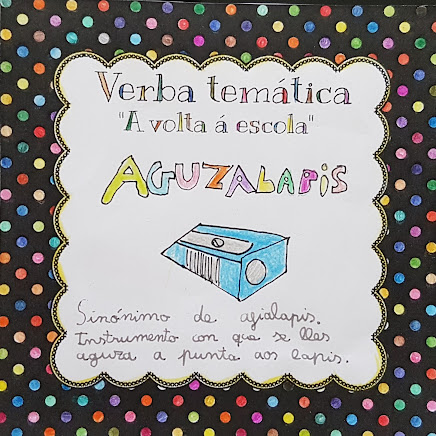 Verba temática
"A volta á escola"
AGUZALAPIS
Sinónimo de afialapis.
Instrumento con que se lles
aguza a punta aos lapis.